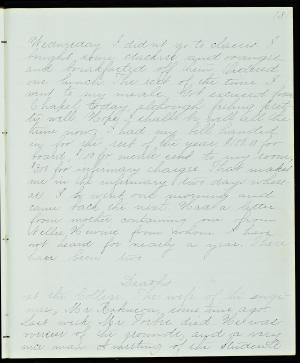 Wednesday I did not go to classes. I
bought some crackers and oranges
and breakfasted off them. Ordered
one lunch. The rest of the time I
went to my meals. Got excused from
Chapel today although feeling pret-
ty well. Hope I shall be well all the
time now. I had my bill handed
in for the rest of the year
board, for meals sent to my room,
for infirmary charges. That makes
me in the infirmary two days
as I went one morning and
came back the next. Had a letter
from mother containing one from
Nellie from whom I have
not heard for nearly a year. There
have been two
Deaths
at the College. The wife of the engi-
neer, Mr. some time ago.
Last week Mr. died. He was
of the grounds and a very
nice man. A meeting of the students